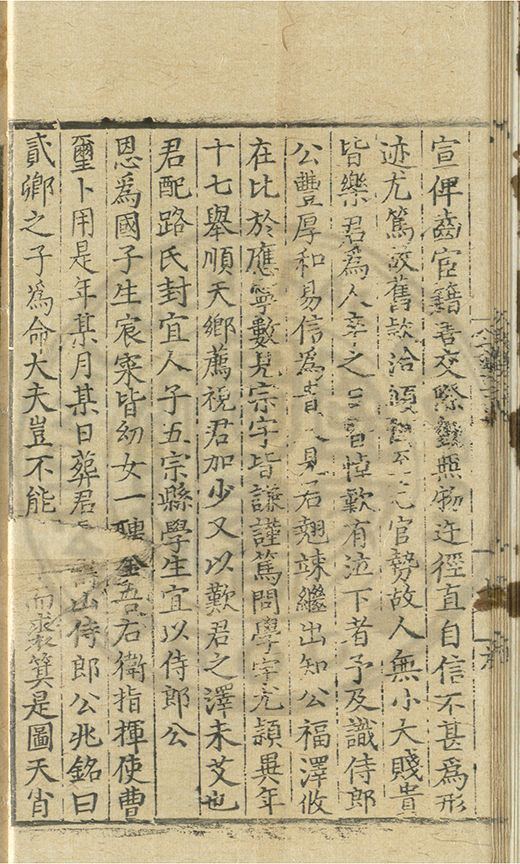 宣俾齒宦籍君交際無迕徑直自信不甚為形
迹尤篤故舊款洽官勢故人無小大賤貴
皆樂君為人卒之日皆悼歎有泣下者予及識侍郎
公豐厚和易信為貴人見君翹竦繼出知公福澤攸
在比於應寧數見宗宇皆謙謹篤問學宇尤穎異年
十七舉順天鄉薦視君加少又以歎君之澤未艾也
君配路氏封宜人子五宗縣學生宜以侍郎公
恩為國子生宸寀皆幼女一聘金吾右衛指揮使曹
璽卜用是年某月某日葬君山侍郎公兆銘曰
貳卿之子為命大夫豈不能而裘箕是圖天胡